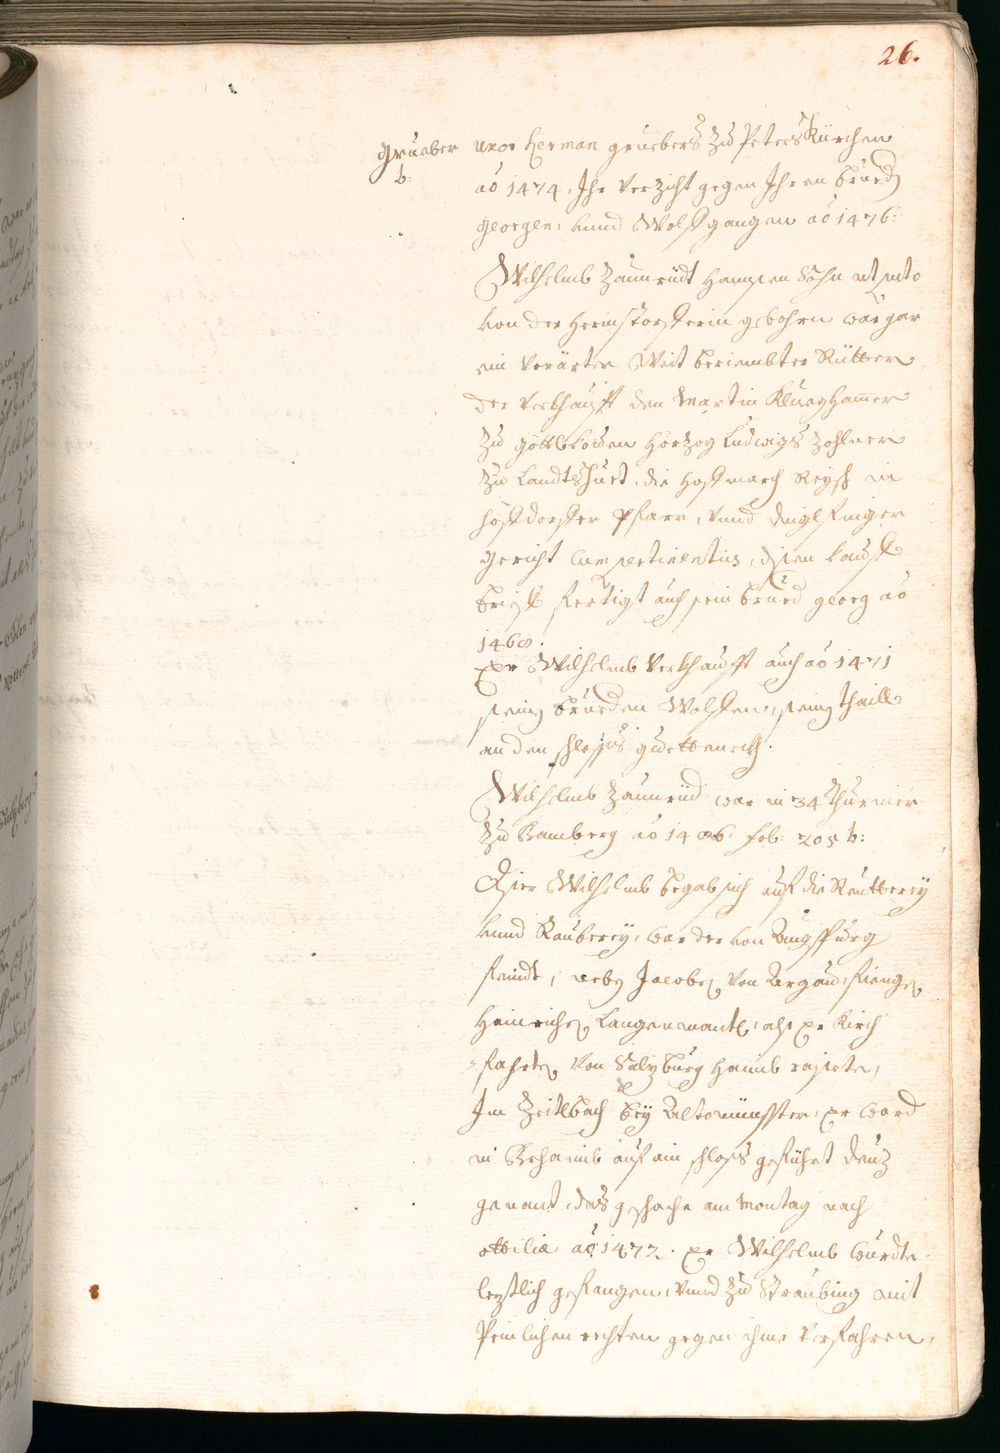 26.
Grueber uxor Herman gruebers zu Peterskürchen
b:
ao 1474, Ihr Verzicht gegen Ihren bruedn
georgen, vnnd Wolfgangen ao 1476:
Wilhelmb Zaunrüdt Hannsen Sohn ut supra
von der Herinstorfferin gebohren war gar
ein Verückter Weit beriembter Rütter
der verkhaufft den Martin Klueghammer
zu göttlkoven Hörzog Ludwigs Zohlner
zu Landtshuet, die Hofmarch Reyß in
Hofdorffer Pfarr, vnnd dinglfinger
gericht cum pertinentiis, disen kauf
brief fertigt auch sein brued georg ao
1468.
er Wilhelmb verkhaufft auch ao 1471
seinen brueden Wolfen, seinen thaill
an den schloss guettenekh.
Wilhelmb Zaunrüd war in 34 thurnier
zu Bamberg ao 1486: fol: 205 b:
Diser Wilhelmb begab sich auf die Reutterey
vnnd Rauberey, war der von Augspurg
feindt, neben Jacoben von Argaw, fienge
Heinrichen Langenmantl, als er Kirch
-fahrten von Salzburg haimb raiste,
Im Zeitlbach bey Altomünster, er ward
in Behaimb auf ain schloss geführt
genant, das geschache am Montag nach
ottiliæ ao 1472. er Wilhelmb wurdte
leztlich gefangen, vnnd zu Straubing mit
Peinlichen rechten gegen ihme verfahren,